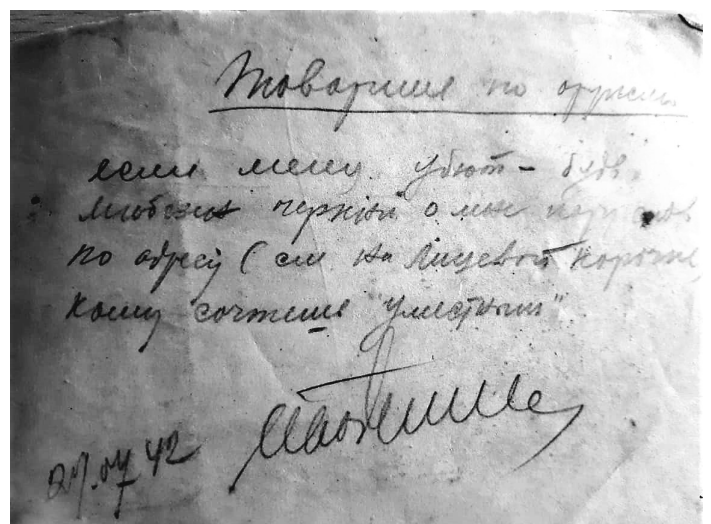 Товарищ по оружию
если меня убьют – будь
любезен черкни о мне пару слов
по адресу (см на лицевой корочке,
кому сочтешь "уместным"
27.07 42